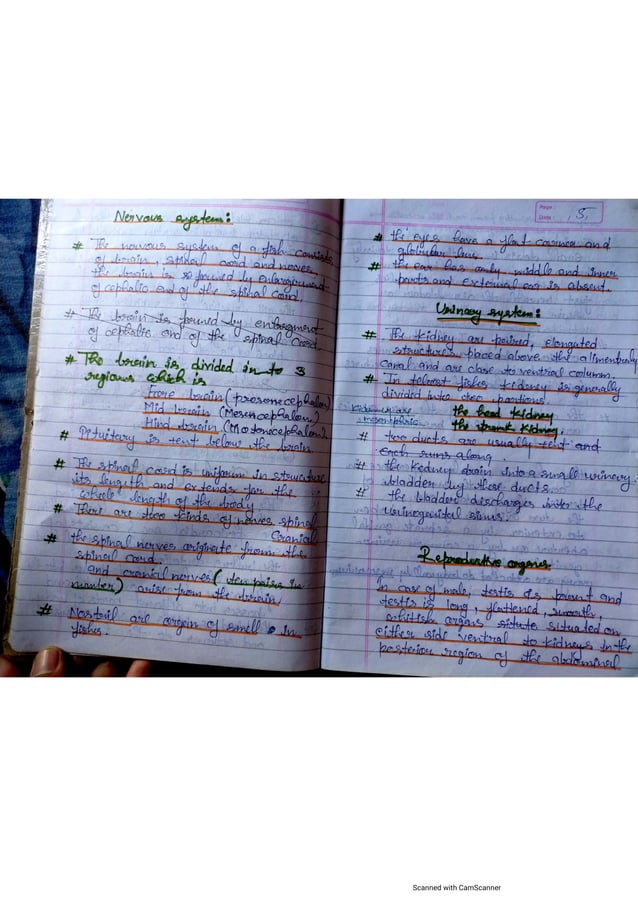 Nervous system:
# The nervous system of a fish consists
of brain, spinal cord and nerves.
the brain is formed by enlargement
of cephalic end of the spinal cord.
# The brain is formed by enlargment
of cephalic end of the spinal cord.
# The brain is divided in to 3
regions which is
Fore brain (prosencephalon)
Mid brain (Mesencephalon)
Hind brain (Metencephalon)
# Pituitary is tent below the brain.
# The spinal cord is uniform in structure
its length and extends for the
whole length of the body
# There are two kinds of nerves spinal
Cranial
# the spinal nerves originate from the
spinal cord
and cranial nerves (ten pairs in
number) arise from the brain
# Nostril are organ of smell in
fishes.
Page :
Date : 5
# the eyes have a flat cornea and
globular lens.
# the ear has only middle and inner
parts and external ear is absent.
Urinary system:
# The kidney are paired, elongated
structures placed above the alimentary
canal and are close to ventral column.
# In teleost fishes kidney is generally
divided into two portions.
Kidneys are the head kidney
mesonephric. the trunk kidney.
# two ducts are usually tent and
each runs along.
# the kedney drain into a small urinary
bladder by these ducts.
# the bladder discharges into the
urinogenital sinus.
Reproductive organs
In case of male, testis is present and
testis is long, flattened, smooth,
whitish organs situate situated on
either side ventral to kidneys in the
posterior region of the abdominal
Scanned with CamScanner